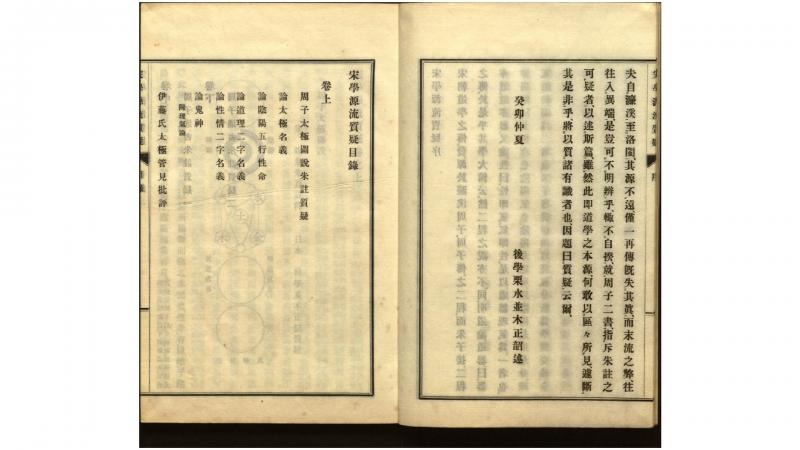 夫自濂溪至洛閩、其源不遠、僅一再傳既失其眞、而末流之弊、往
往入異端、是豈可不明辨乎、輙不自揆、就周子二書、指斥朱註之
可疑者、以述斯篇、雖然此即道學之本源、何敢以區々所見、遽斷
其是非乎、將以質諸有識者也、因題曰質疑云爾、
癸卯仲夏
後學栗水並木正韶述
宋學源流質疑目錄
卷上
周子太極圖說朱註質疑
論太極名義
論陰陽五行性命
論道理二字名義
論性情二字名義
論鬼神
附理氣論
伊藤氏太極管見批評